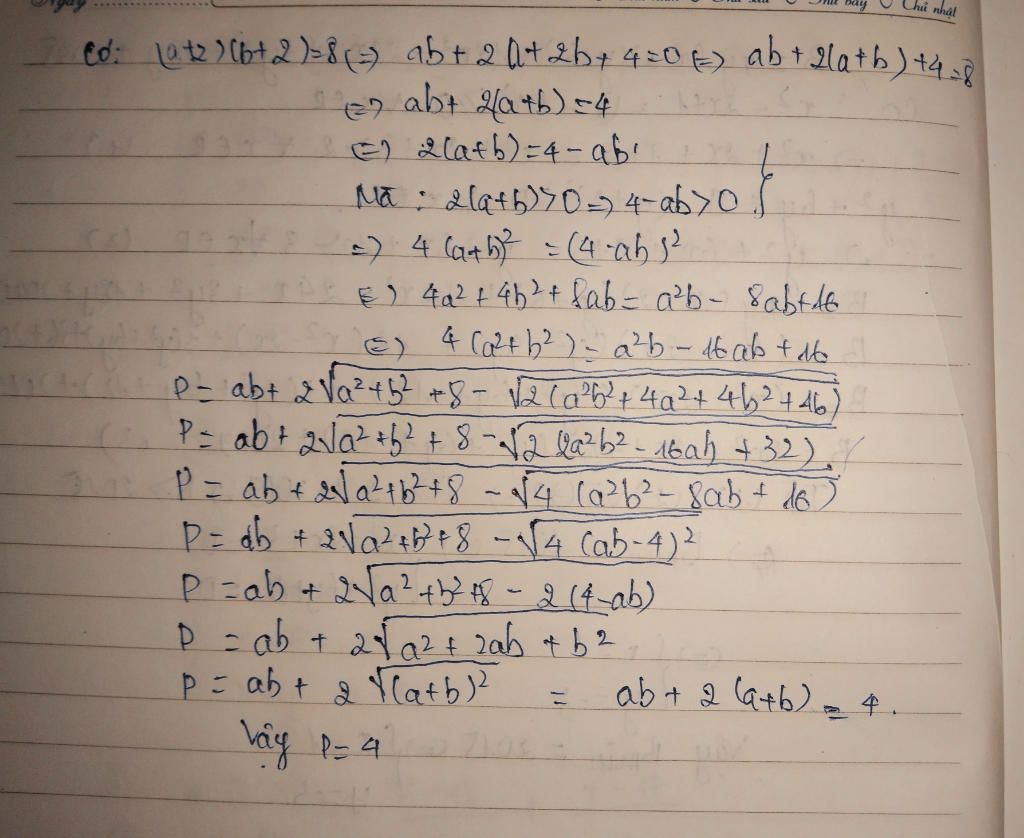 Ngày
Thứ bảy Chủ nhật
Có: (a+2)(b+2)=8 (=) ab + 2a + 2b + 4 = 0 (=) ab + 2(a+b) + 4 = 8
(=) ab + 2(a+b) = 4
(=) 2(a+b) = 4 - ab
Mà : 2(a+b) > 0 => 4-ab > 0 }
=> 4(a+b)² = (4-ab)²
(=) 4a² + 4b² + 8ab = a²b - 8ab + 16
(=) 4(a²+b²) = a²b - 16ab + 16
P = ab + 2√(a²+b²+8-√(2(a²b²+4a²+4b²+16)))
P = ab + 2√(a²+b²+8-√(2(2a²b²-16ab+32)))
P = ab + 2√(a²+b²+8-√(4(a²b²-8ab+16)))
P = ab + 2√(a²+b²+8-√(4(ab-4)²))
P = ab + 2√(a²+b²+8-2(4-ab))
P = ab + 2√(a²+2ab+b²)
P = ab + 2√((a+b)²) = ab + 2(a+b) = 4.
Vậy P = 4